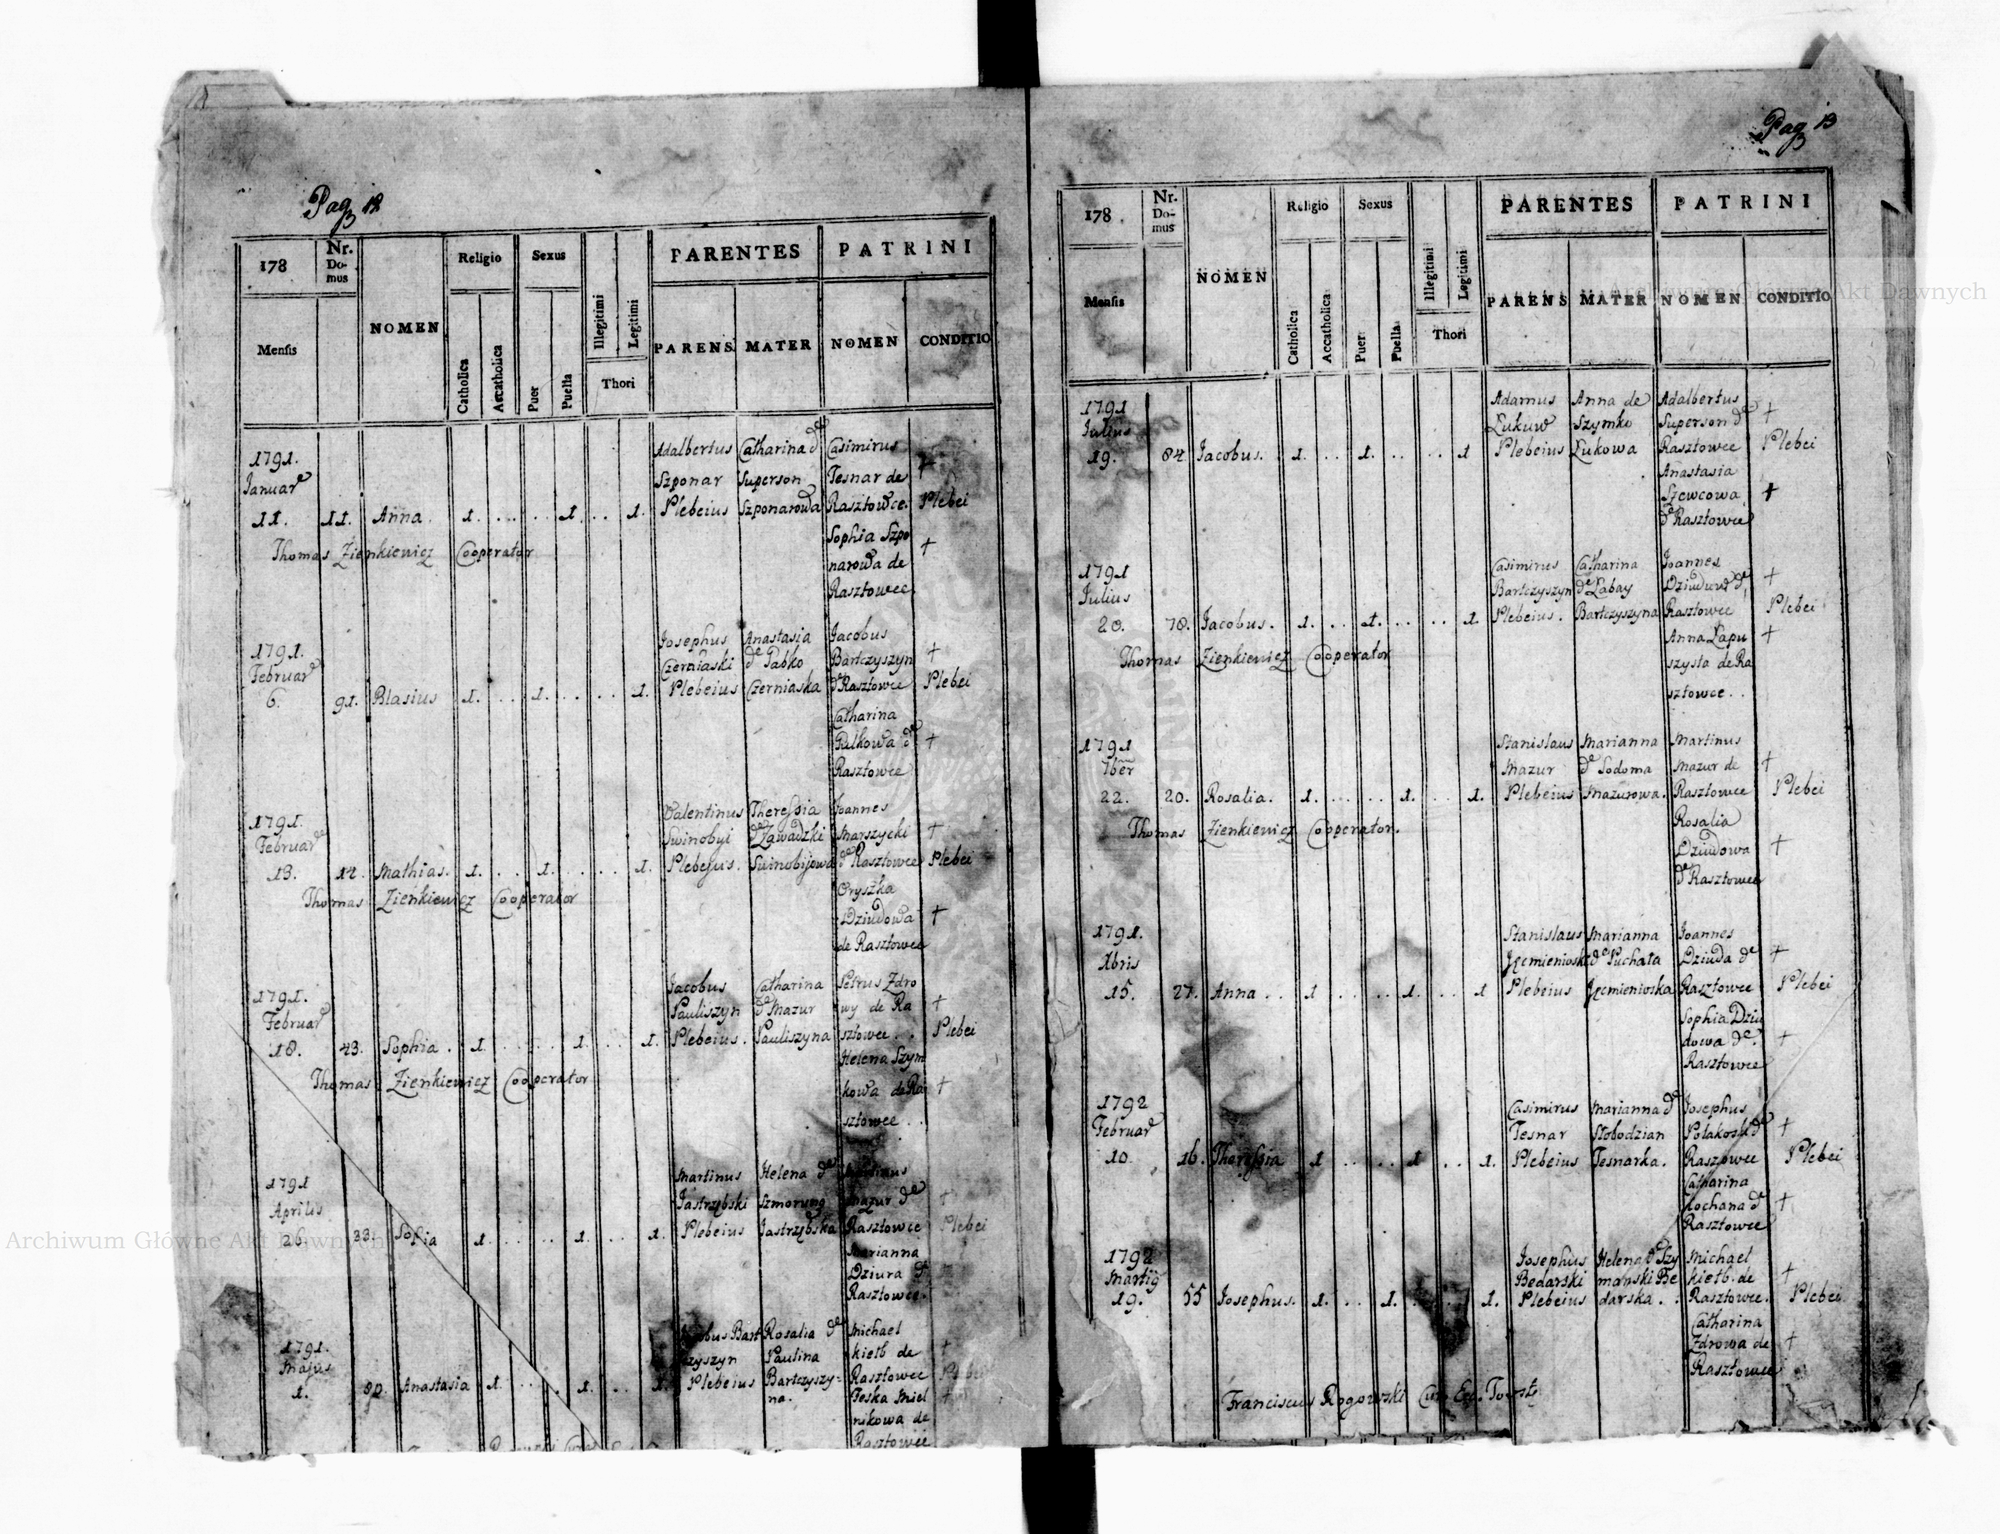 Pag 12
178
Nr. Domus
NOMEN
Religio
Sexus
PARENTES
PATRINI
Mensis
Catholica
Accatholica
Puer
Puella
Illegitimi
Legitimi
Thori
PARENS
MATER
NOMEN
CONDITIO
Adalbertus Catharina de Casimirus
1791.
Januar Szponar Superson Tesnar de †
11. 11. Anna. 1. 1. 1. Plebeius Szponarowa Rasztowce. Plebei
Thomas Zienkiewicz Cooperator
Sophia Szpo
narowa de †
Rasztowce.
Josephus Anastasia Jacobus
1791.
Februar Czerniaski de Pabko Bartczyszyn †
6. 91. Blasius 1. 1. 1. Plebeius Czerniaska de Rasztowce Plebei
Catharina
Palkowa de †
Rasztowce
Valentinus Theressia Joannes
1791.
Februar Swinobyi de Zawadzki Marszycki †
13. 14. Mathias. 1. 1. 1. Plebejus. Swinobijowa de Rasztowce Plebei
Thomas Zienkiewicz Cooperator
Oryszka
Dziudowa †
de Rasztowce
Jacobus Catharina Petrus Zdro
1791.
Februar Pauliszyn de Mazur wy de Ra †
18. 43. Sophia. 1. 1. 1. Plebeius. Pauliszyna sztowce.. Plebei
Thomas Zienkiewicz Cooperator
Helena Szym
kowa de Ra †
sztowce..
Martinus Helena de
1791
Aprilis Jastrzębski Mazur de †
26. 33. Sofia 1. 1. 1. Plebeius Jastrzębska Rasztowce Plebei
Marianna
Dziura de
Rasztowce.
Rosalia de Michael
1791.
Majus Paulina kielb de †
1. Anastasia 1. 1. 1. Plebeius Bartczyszy= Rasztowce
na. Teska Miel †
nikowa de
Rasztowce
Pag 13
178
Nr. Domus
NOMEN
Religio
Sexus
PARENTES
PATRINI
Mensis
Catholica
Accatholica
Puer
Puella
Illegitimi
Legitimi
Thori
PARENS
MATER
NOMEN
CONDITIO
Adamus Anna de Adalbertus
1791
Julius Łukuw Szymko Superson de †
19. 84. Jacobus. 1. 1. 1 Plebeius Łukowa Rasztowce Plebei
Anastasia
Szewcowa †
de Rasztowce
Casimirus Catharina Joannes
1791
Julius Bartczyszyn de Łabay Dziuduw de †
20. 78. Jacobus. 1. 1. 1. Plebeius. Bartczyszyna Rasztowce Plebei
Thomas Zienkiewicz Cooperator
Anna Łapu †
szysta de Ra
sztowce..
Stanislaus Marianna Martinus
1791
7ber Mazur de Sodoma Mazur de †
22. 20. Rosalia. 1. 1. 1. Plebeius Mazurowa. Rasztowce Plebei
Thomas Zienkiewicz Cooperator.
Rosalia
Dziudowa †
de Rasztowce
Stanislaus Marianna Joannes
1791.
Xbris de Puchata Dziuda de †
15. 27. Anna.. 1 1. 1 Plebeius Jęcmienioska Rasztowce Plebei
Sophia Dziu
dowa de. †
Rasztowce
Casimirus Marianna de Josephus
1792
Februar Tesnar Słobodzian Polakoski de †
10. 16. Theressia 1 1 1. Plebeius Tesnarka. Raszowce Plebei
Catharina
Kochana de †
Rasztowce
Josephus Helena de Szy Michael
1792
Martij Bedarski manski Be kielb. de †
19. 55 Josephus. 1. 1. 1. Plebeius darska. Rasztowce. Plebei
Catharina
Zdrowa de †
Rasztowce
Franciscus Rogowski
Archiwum Główne Akt Dawnych
Archiwum Główne Akt Dawnych